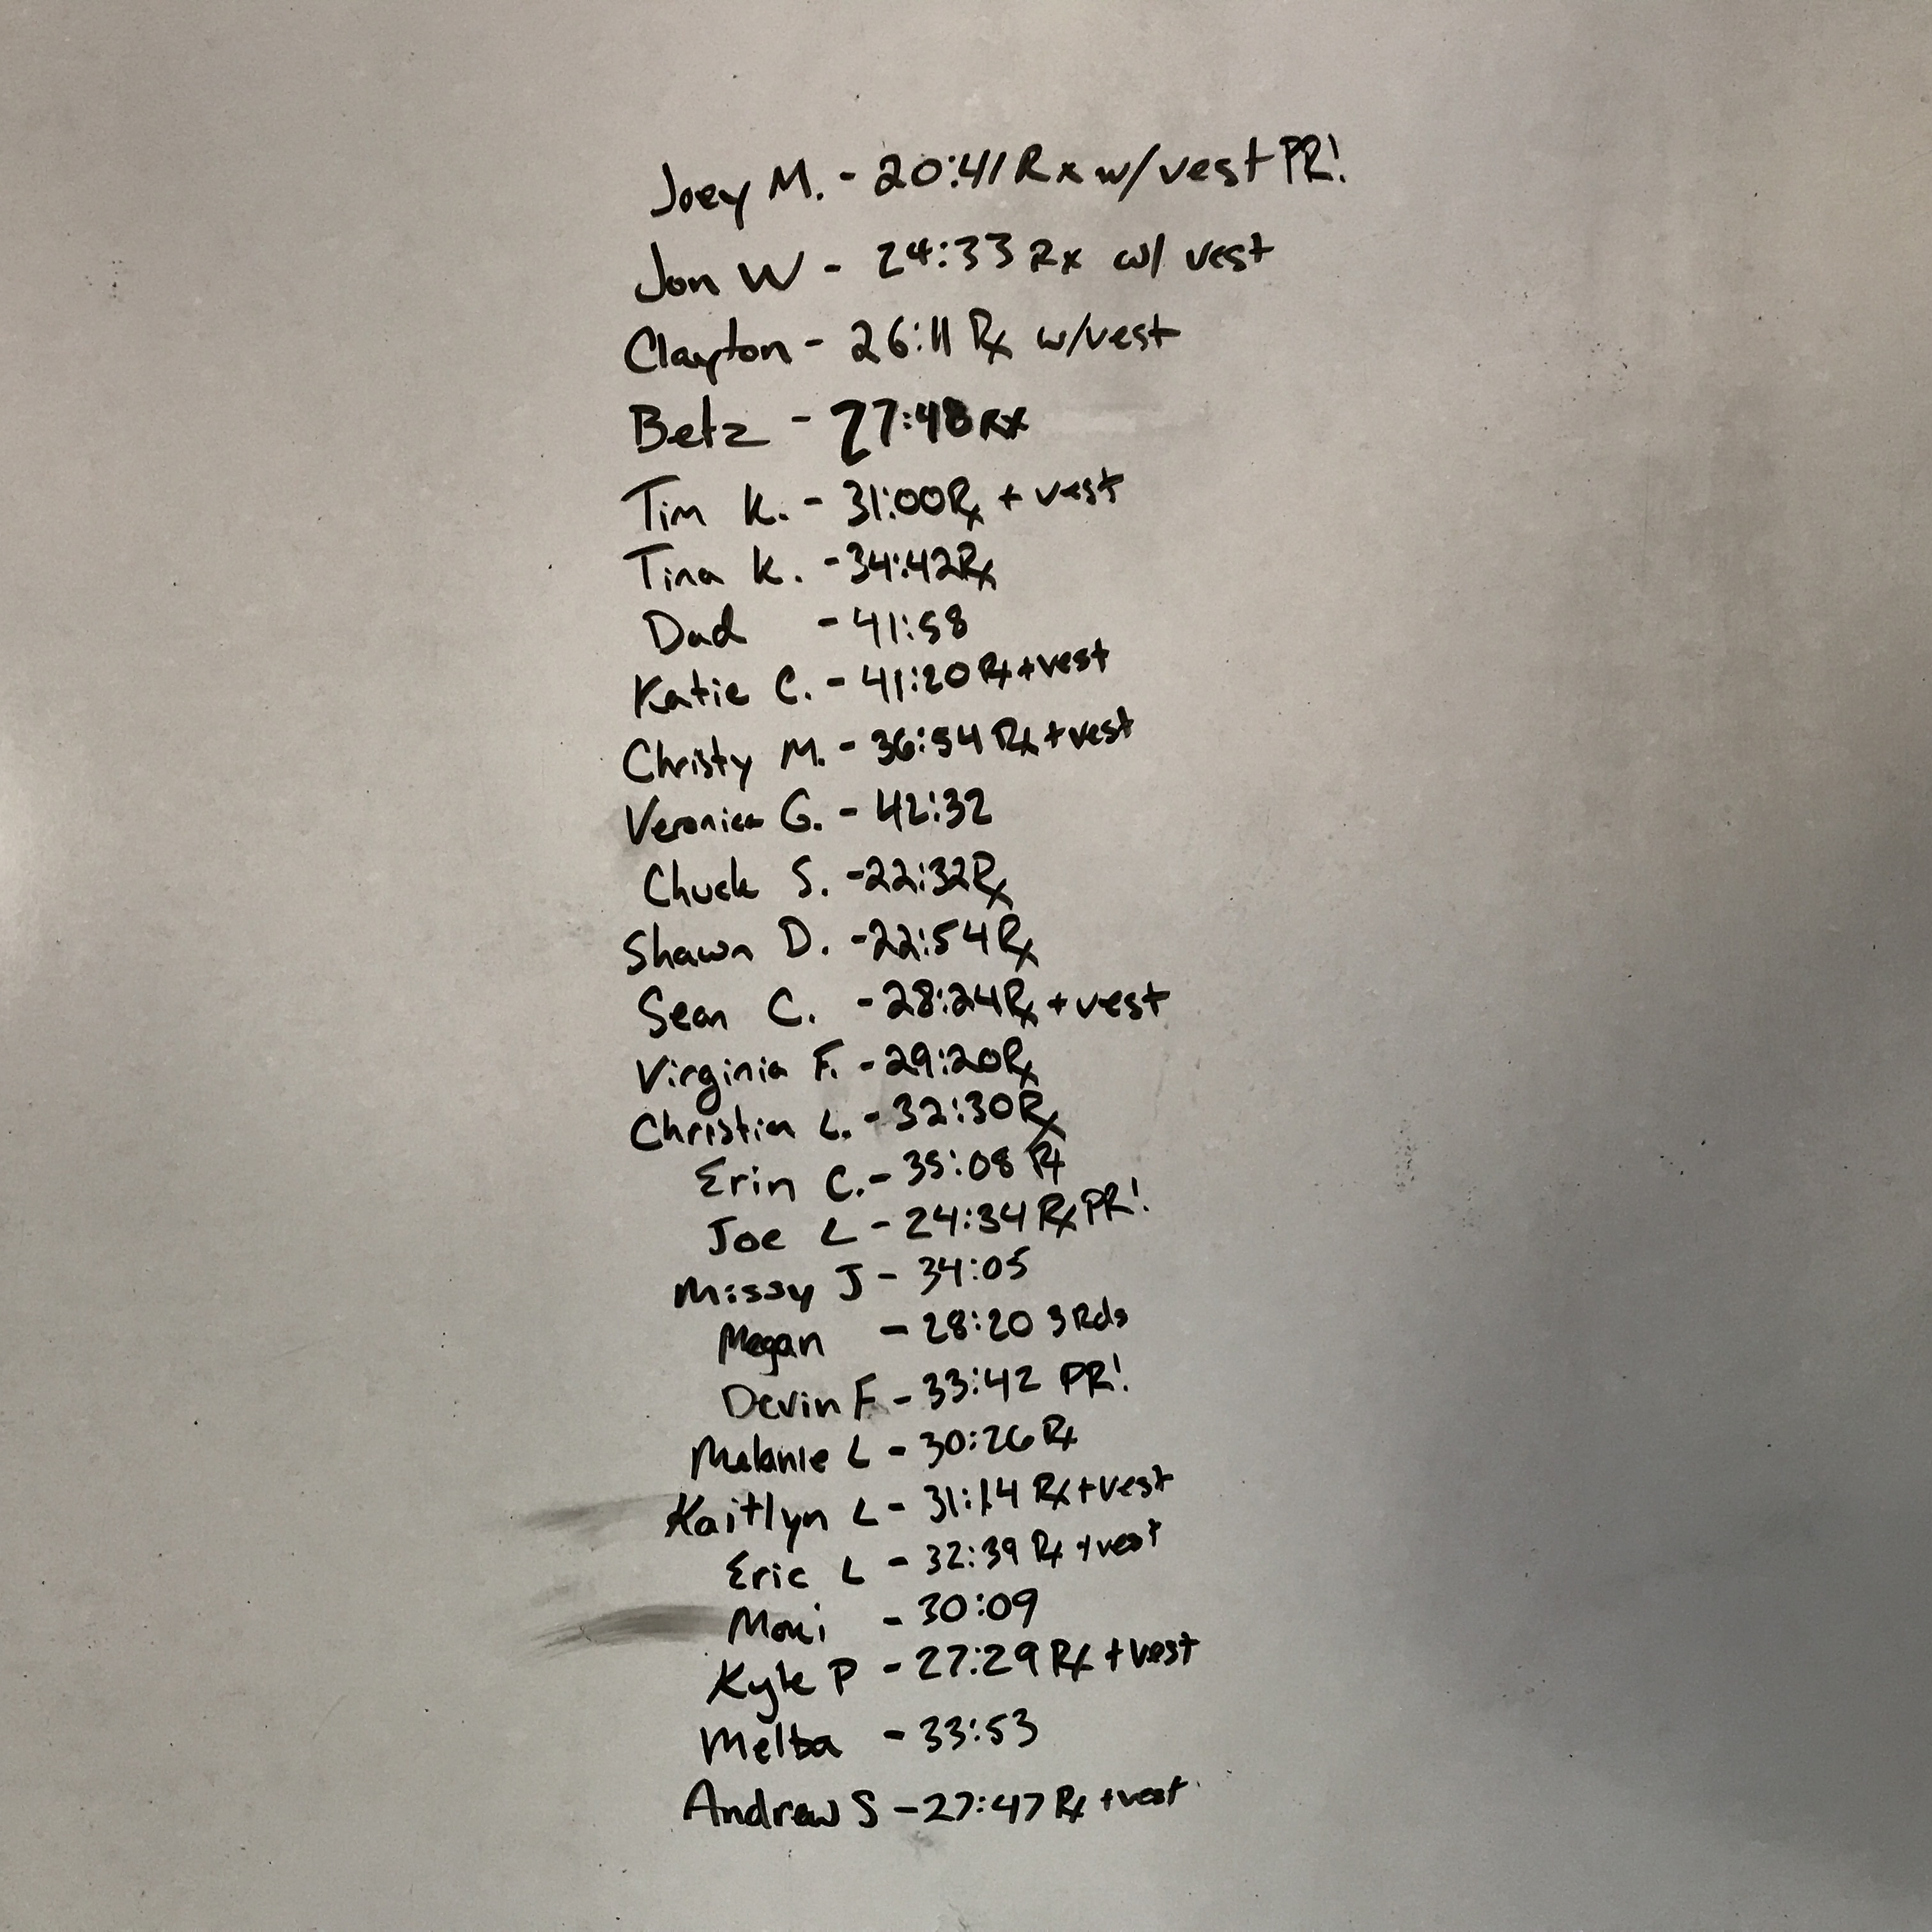 Joey M. - 20:41 Rx w/vest PR!
Jon W - 24:33 Rx w/ vest
Clayton - 26:11 Rx w/vest
Betz - 27:48 Rx
Tim K. - 31:00 Rx + vest
Tina K. - 34:42 Rx
Dad - 41:58
Katie C. - 41:20 Rx + vest
Christy M. - 36:54 Rx + vest
Veronica G. - 42:32
Chuck S. - 22:32 Rx
Shawn D. - 22:54 Rx
Sean C. - 28:24 Rx + vest
Virginia F. - 29:20 Rx
Christian L. - 32:30 Rx
Erin C. - 35:08 Rx
Joe L - 24:34 Rx PR!
Missy J - 34:05
Megan - 28:20 3 Rds
Devin F - 33:42 PR!
Melanie L - 30:26 Rx
Kaitlyn L - 31:14 Rx + vest
Eric L - 32:39 Rx + vest
Moni - 30:09
Kyle P - 27:29 Rx + vest
Melba - 33:53
Andrew S - 27:47 Rx + vest